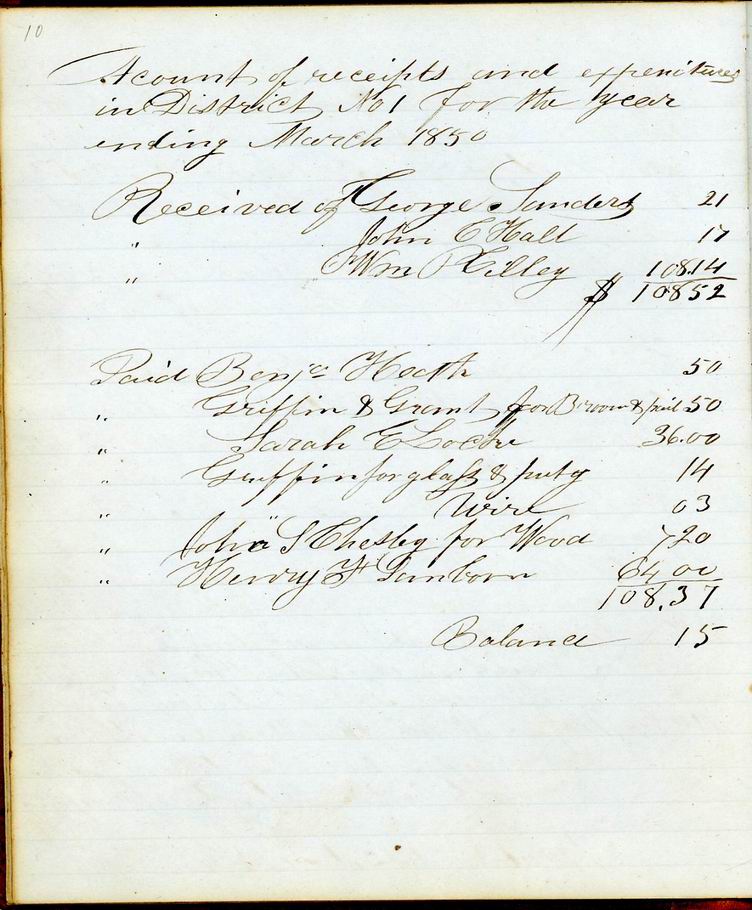 10
Acount of receipts and expenitures
in District No 1 for the year
ending March 1850
Received of George Sanders 21
" John C Hall 17
" Wm P Cilley 108.14
$ 108 52
Paid Benja Heath 50
" Griffin & Grant for Broom & pail 50
" Sarah E Locke 36.00
" Griffin for glass & puty 14
" " Wire 03
" John S Chesley for Wood 7 20
" Henry F Sanborn 64 00
108.37
Balance 15